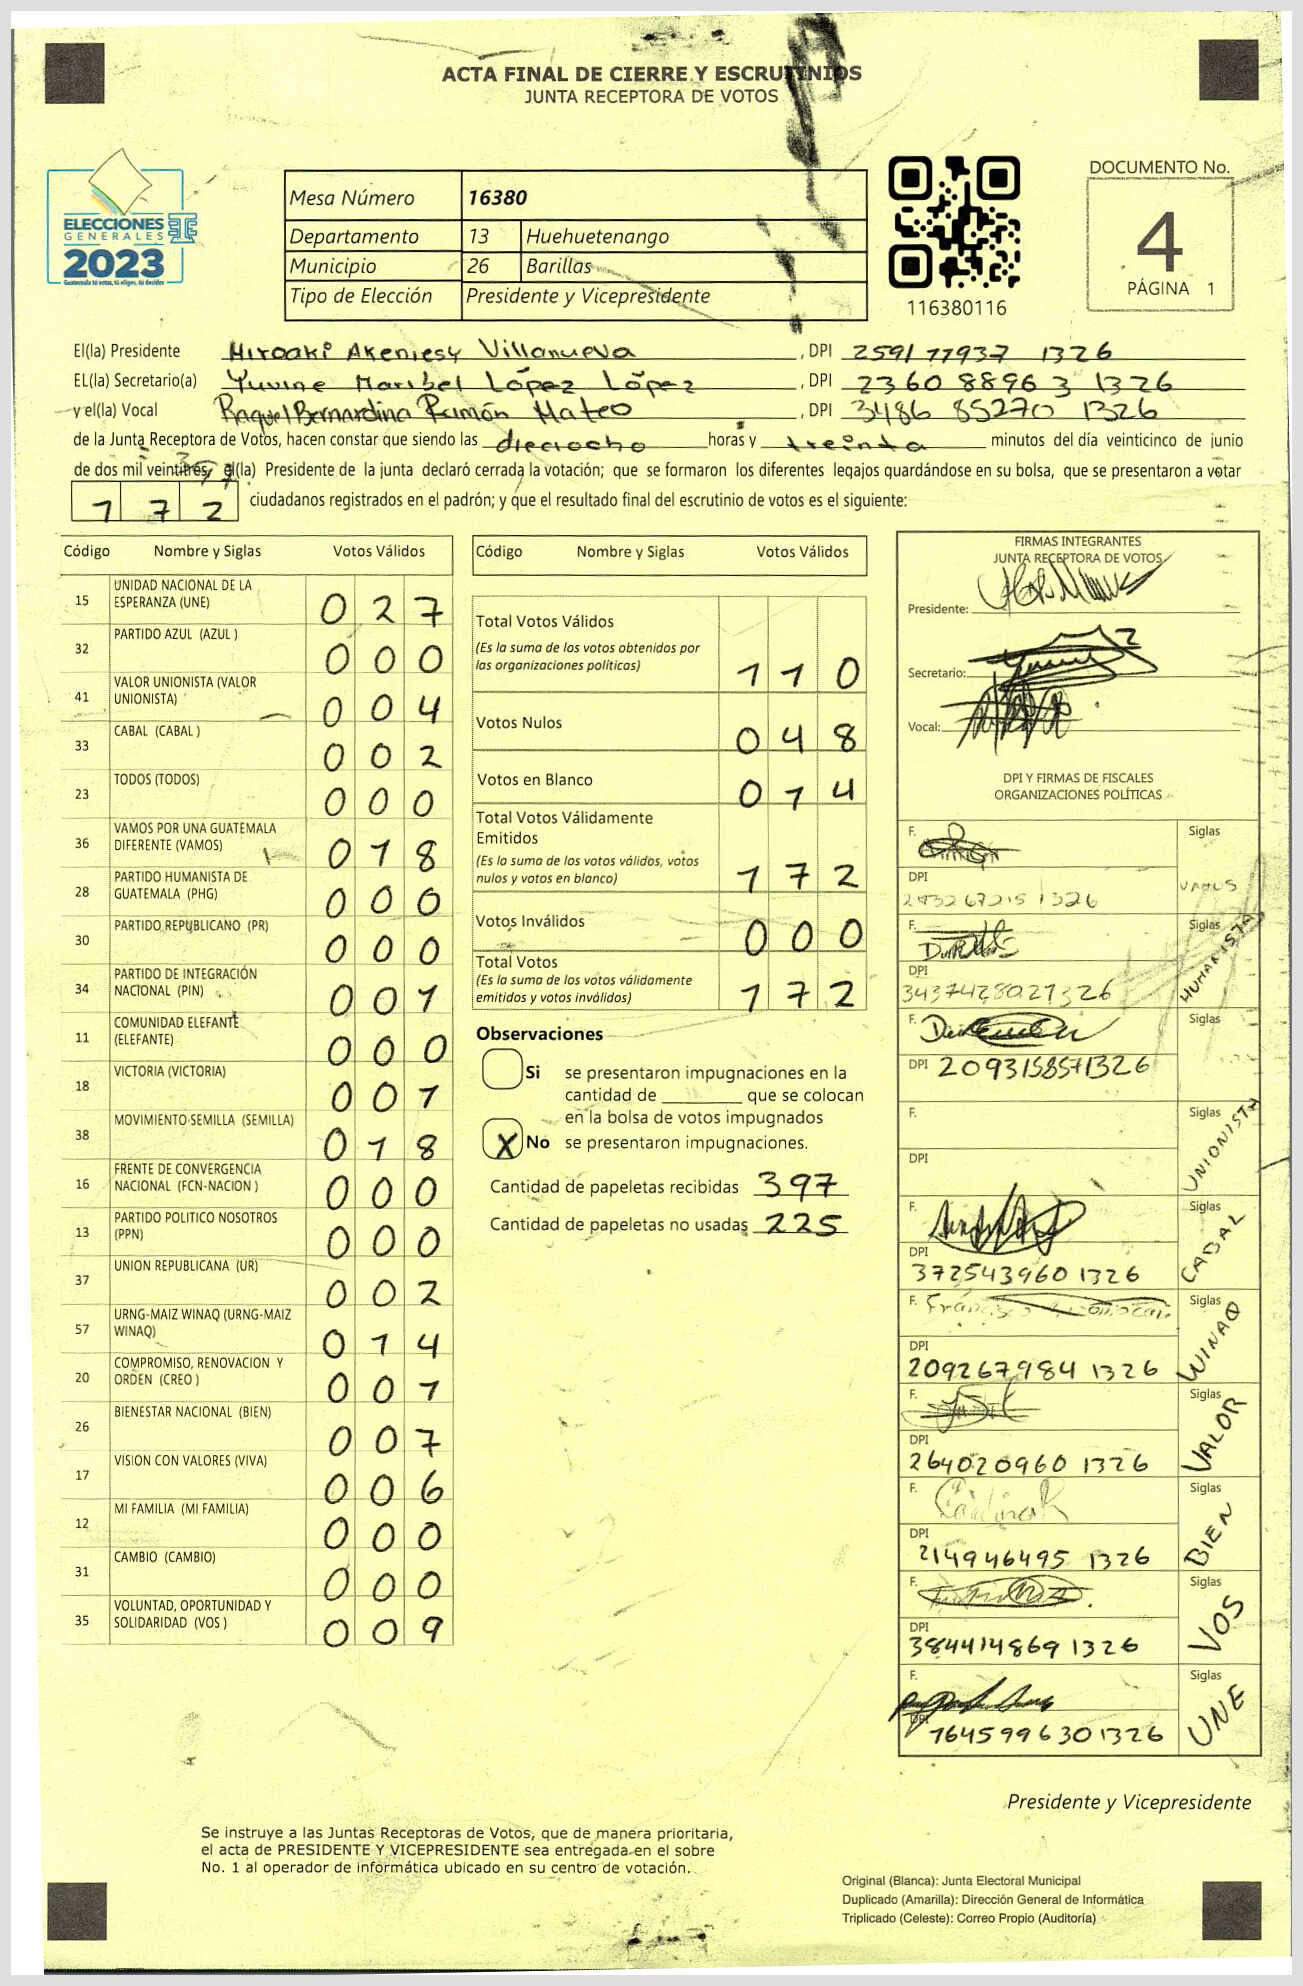 ACTA FINAL DE CIERRE Y ESCRUTINIOS
JUNTA RECEPTORA DE VOTOS
ELECCIONES
GENERALES
2023
Guatemala tú votas, tú eliges, tú decides
Mesa Número 16380
Departamento 13 Huehuetenango
Municipio 26 Barillas
Tipo de Elección Presidente y Vicepresidente
116380116
DOCUMENTO No.
4
PÁGINA 1
El(la) Presidente Hiroaki Akeniesy Villanueva , DPI 2591 77937 1326
EL(la) Secretario(a) Yuvine Maribel López López , DPI 2360 88963 1326
y el(la) Vocal Raquel Bernardina Ramón Mateo , DPI 3486 85270 1326
de la Junta Receptora de Votos, hacen constar que siendo las dieciocho horas y treinta minutos del día veinticinco de junio
de dos mil veintitres, el(la) Presidente de la junta declaró cerrada la votación; que se formaron los diferentes legajos guardándose en su bolsa, que se presentaron a votar
172 ciudadanos registrados en el padrón; y que el resultado final del escrutinio de votos es el siguiente:
Código Nombre y Siglas Votos Válidos
15 UNIDAD NACIONAL DE LA ESPERANZA (UNE) 027
32 PARTIDO AZUL (AZUL ) 000
41 VALOR UNIONISTA (VALOR UNIONISTA) 004
33 CABAL (CABAL ) 002
23 TODOS (TODOS) 000
36 VAMOS POR UNA GUATEMALA DIFERENTE (VAMOS) 018
28 PARTIDO HUMANISTA DE GUATEMALA (PHG) 000
30 PARTIDO REPUBLICANO (PR) 000
34 PARTIDO DE INTEGRACIÓN NACIONAL (PIN) 001
11 COMUNIDAD ELEFANTE (ELEFANTE) 000
18 VICTORIA (VICTORIA) 001
38 MOVIMIENTO SEMILLA (SEMILLA) 018
16 FRENTE DE CONVERGENCIA NACIONAL (FCN-NACION ) 000
13 PARTIDO POLITICO NOSOTROS (PPN) 000
37 UNION REPUBLICANA (UR) 002
57 URNG-MAIZ WINAQ (URNG-MAIZ WINAQ) 014
20 COMPROMISO, RENOVACION Y ORDEN (CREO ) 001
26 BIENESTAR NACIONAL (BIEN) 007
17 VISION CON VALORES (VIVA) 006
12 MI FAMILIA (MI FAMILIA) 000
31 CAMBIO (CAMBIO) 000
35 VOLUNTAD, OPORTUNIDAD Y SOLIDARIDAD (VOS ) 009
Código Nombre y Siglas Votos Válidos
Total Votos Válidos
(Es la suma de los votos obtenidos por
las organizaciones políticas) 110
Votos Nulos 048
Votos en Blanco 014
Total Votos Válidamente
Emitidos
(Es la suma de los votos válidos, votos
nulos y votos en blanco) 172
Votos Inválidos 000
Total Votos
(Es la suma de los votos válidamente
emitidos y votos inválidos) 172
Observaciones
Si se presentaron impugnaciones en la
cantidad de ________ que se colocan
en la bolsa de votos impugnados
X No se presentaron impugnaciones.
Cantidad de papeletas recibidas 397
Cantidad de papeletas no usadas 225
FIRMAS INTEGRANTES
JUNTA RECEPTORA DE VOTOS
Presidente:
Secretario:
Vocal:
DPI Y FIRMAS DE FISCALES
ORGANIZACIONES POLÍTICAS
F. Siglas
DPI VAMOS
1326
F. Siglas HUMANISTA
DPI
3437428021326
F. Siglas
DPI 2093158571326
F. Siglas UNIONISTA
DPI
F. Siglas CABAL
DPI
372543960 1326
F. Siglas WINAQ
DPI
209267984 1326
F. Siglas VALOR
DPI
264020960 1326
F. Siglas BIEN
DPI
214946495 1326
F. Siglas VOS
DPI
384414869 1326
F. Siglas UNE
DPI
1645996301326
Presidente y Vicepresidente
Se instruye a las Juntas Receptoras de Votos, que de manera prioritaria,
el acta de PRESIDENTE Y VICEPRESIDENTE sea entregada en el sobre
No. 1 al operador de informática ubicado en su centro de votación.
Original (Blanca): Junta Electoral Municipal
Duplicado (Amarilla): Dirección General de Informática
Triplicado (Celeste): Correo Propio (Auditoría)